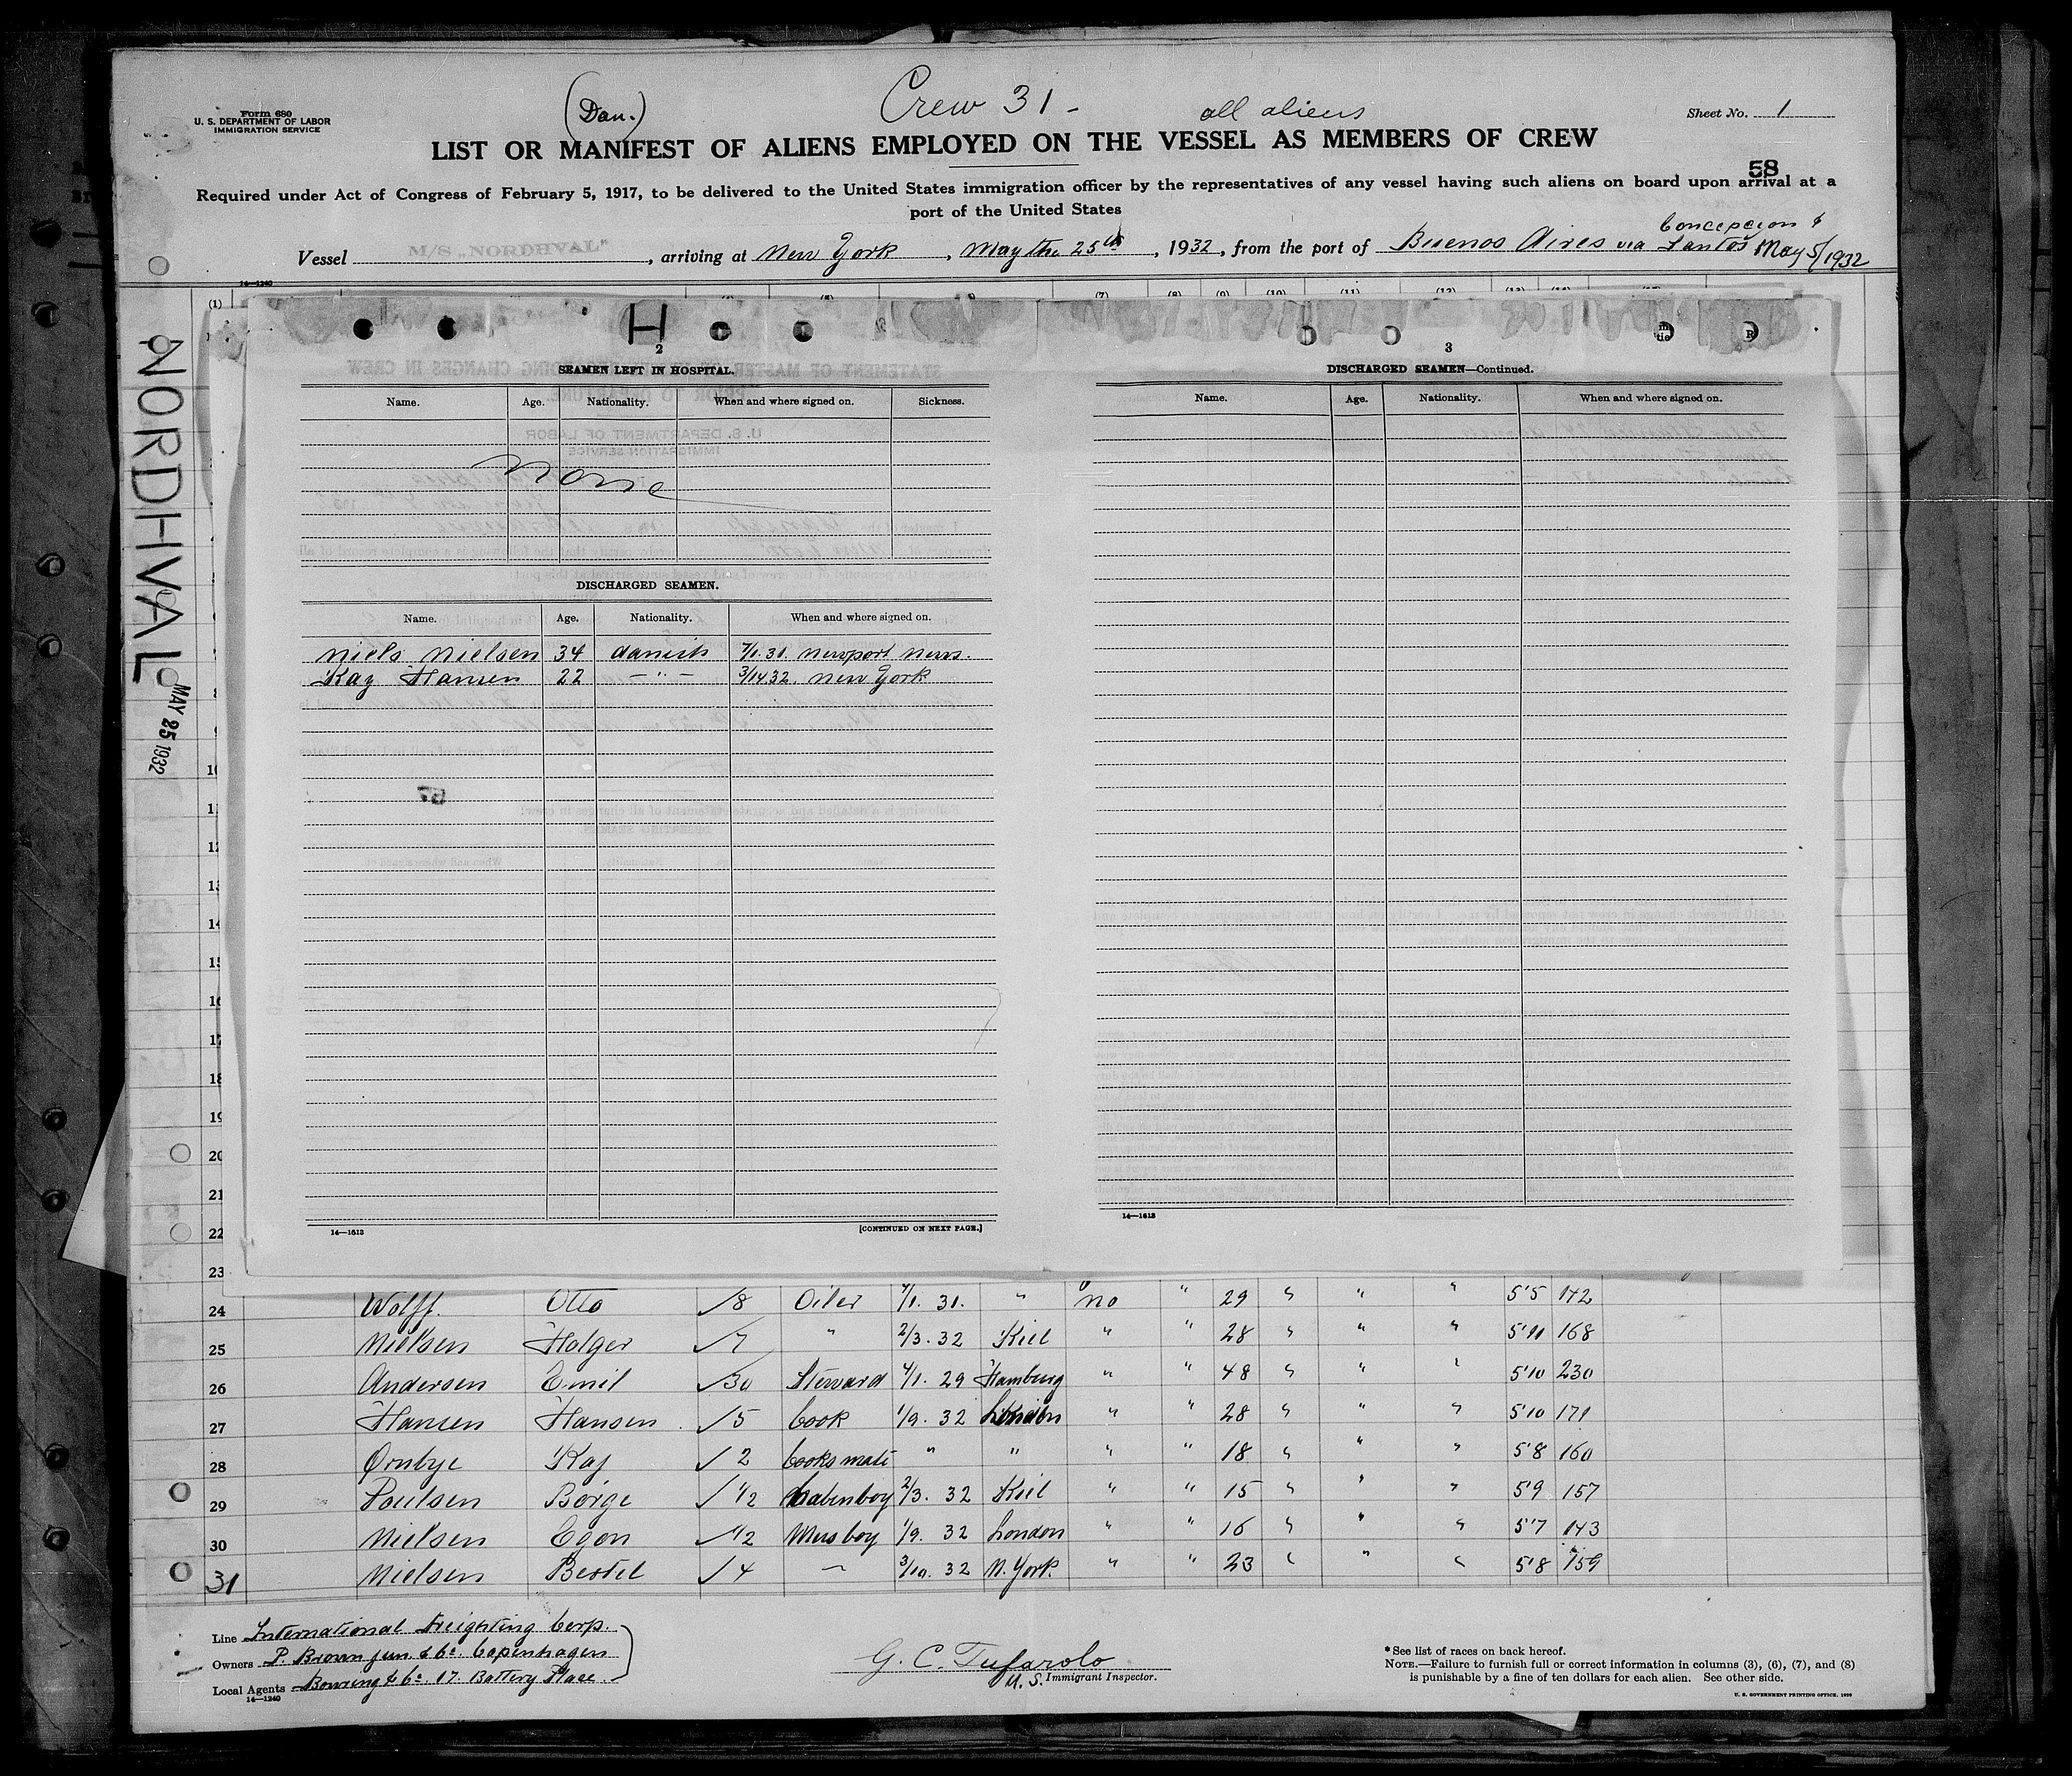 Form 680
U. S. DEPARTMENT OF LABOR
IMMIGRATION SERVICE
(Dan.)
Crew 31 -
all aliens
Sheet No. 1
LIST OR MANIFEST OF ALIENS EMPLOYED ON THE VESSEL AS MEMBERS OF CREW
58
Required under Act of Congress of February 5, 1917, to be delivered to the United States immigration officer by the representatives of any vessel having such aliens on board upon arrival at a
port of the United States
Concepcion &
Vessel M/S „NORDHVAL", arriving at New York, May the 25th, 1932, from the port of Buenos Aires via Santos May 5/1932
14—1240
(1) (7) (8) (9) (10) (11) (12)
NORDHVAL
MAY 25 1932
H
2
SEAMEN LEFT IN HOSPITAL.
Name. Age. Nationality. When and where signed on. Sickness.
None
DISCHARGED SEAMEN.
Name. Age. Nationality. When and where signed on.
Niels Nielsen 34 danish 7/1.31. Newport News.
Kaj Hansen 22 — " — 3/14 32. New York
14—1613
[CONTINUED ON NEXT PAGE.]
3
DISCHARGED SEAMEN—Continued.
Name. Age. Nationality. When and where signed on.
14—1613
10
11
12
13
14
15
16
17
18
19
20
21
22
23
24 Wolff. Otto √8 Oiler 4/1. 31. " no " 29 " " " 5'5 142
25 Nielsen Holger √7 " 2/3. 32 Kiel " " 28 " " " 5'11 168
26 Andersen Emil √30 Steward 4/1. 29 Hamburg " " 48 " " " 5'10 230
27 Hansen Hansen √5 Cook 1/9. 32 London " " 28 " " " 5'10 171
28 Ørnbye Kaj √2 Cooks mate " " " " 18 " " " 5'8 160
29 Poulsen Börge √1/2 Cabenboy 2/3. 32 Kiel " " 15 " " " 5'9 157
30 Nielsen Egon √1/2 Messboy 1/9. 32 London " " 16 " " " 5'7 143
31 Nielsen Bertel √4 — 3/10. 32 N. York. " " 23 " " " 5'8 159
Line International Freighting Corp.
Owners P. Brown jun. & Co. Copenhagen
Local Agents Bowring & Co. 17. Battery Place.
14—1240
G. C. Tufarolo
U. S. Immigrant Inspector.
* See list of races on back hereof.
NOTE.—Failure to furnish full or correct information in columns (3), (6), (7), and (8)
is punishable by a fine of ten dollars for each alien. See other side.
U. S. GOVERNMENT PRINTING OFFICE. 1930